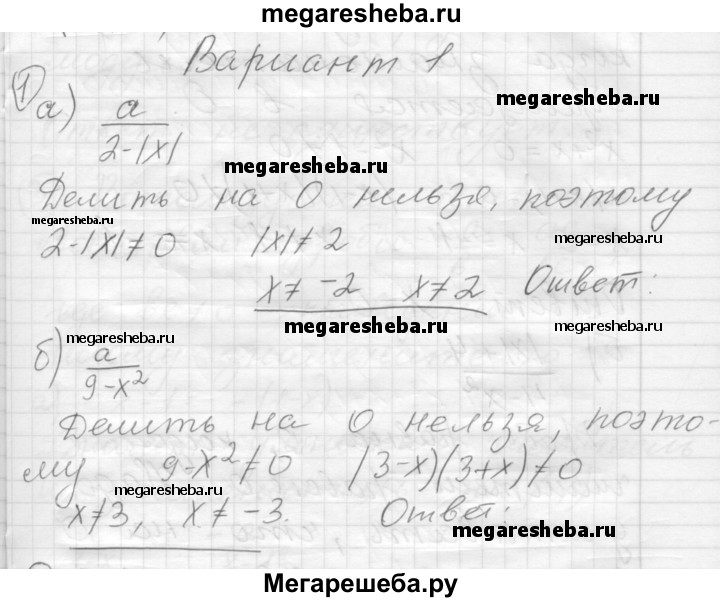 megaresheba.ru
Вариант 1
1) а) a / 2-|x|
megaresheba.ru
megaresheba.ru
Делить на 0 нельзя, поэтому
megaresheba.ru
2-|x|≠0 |x|≠2
megaresheba.ru
x≠-2 x≠2 Ответ:
megaresheba.ru
megaresheba.ru
megaresheba.ru
б) a / 9-x²
Делить на 0 нельзя, поэто-
му 9-x²≠0 (3-x)(3+x)≠0
megaresheba.ru
x≠3, x≠-3. Ответ:
megaresheba.ru
Мегарешеба.ру